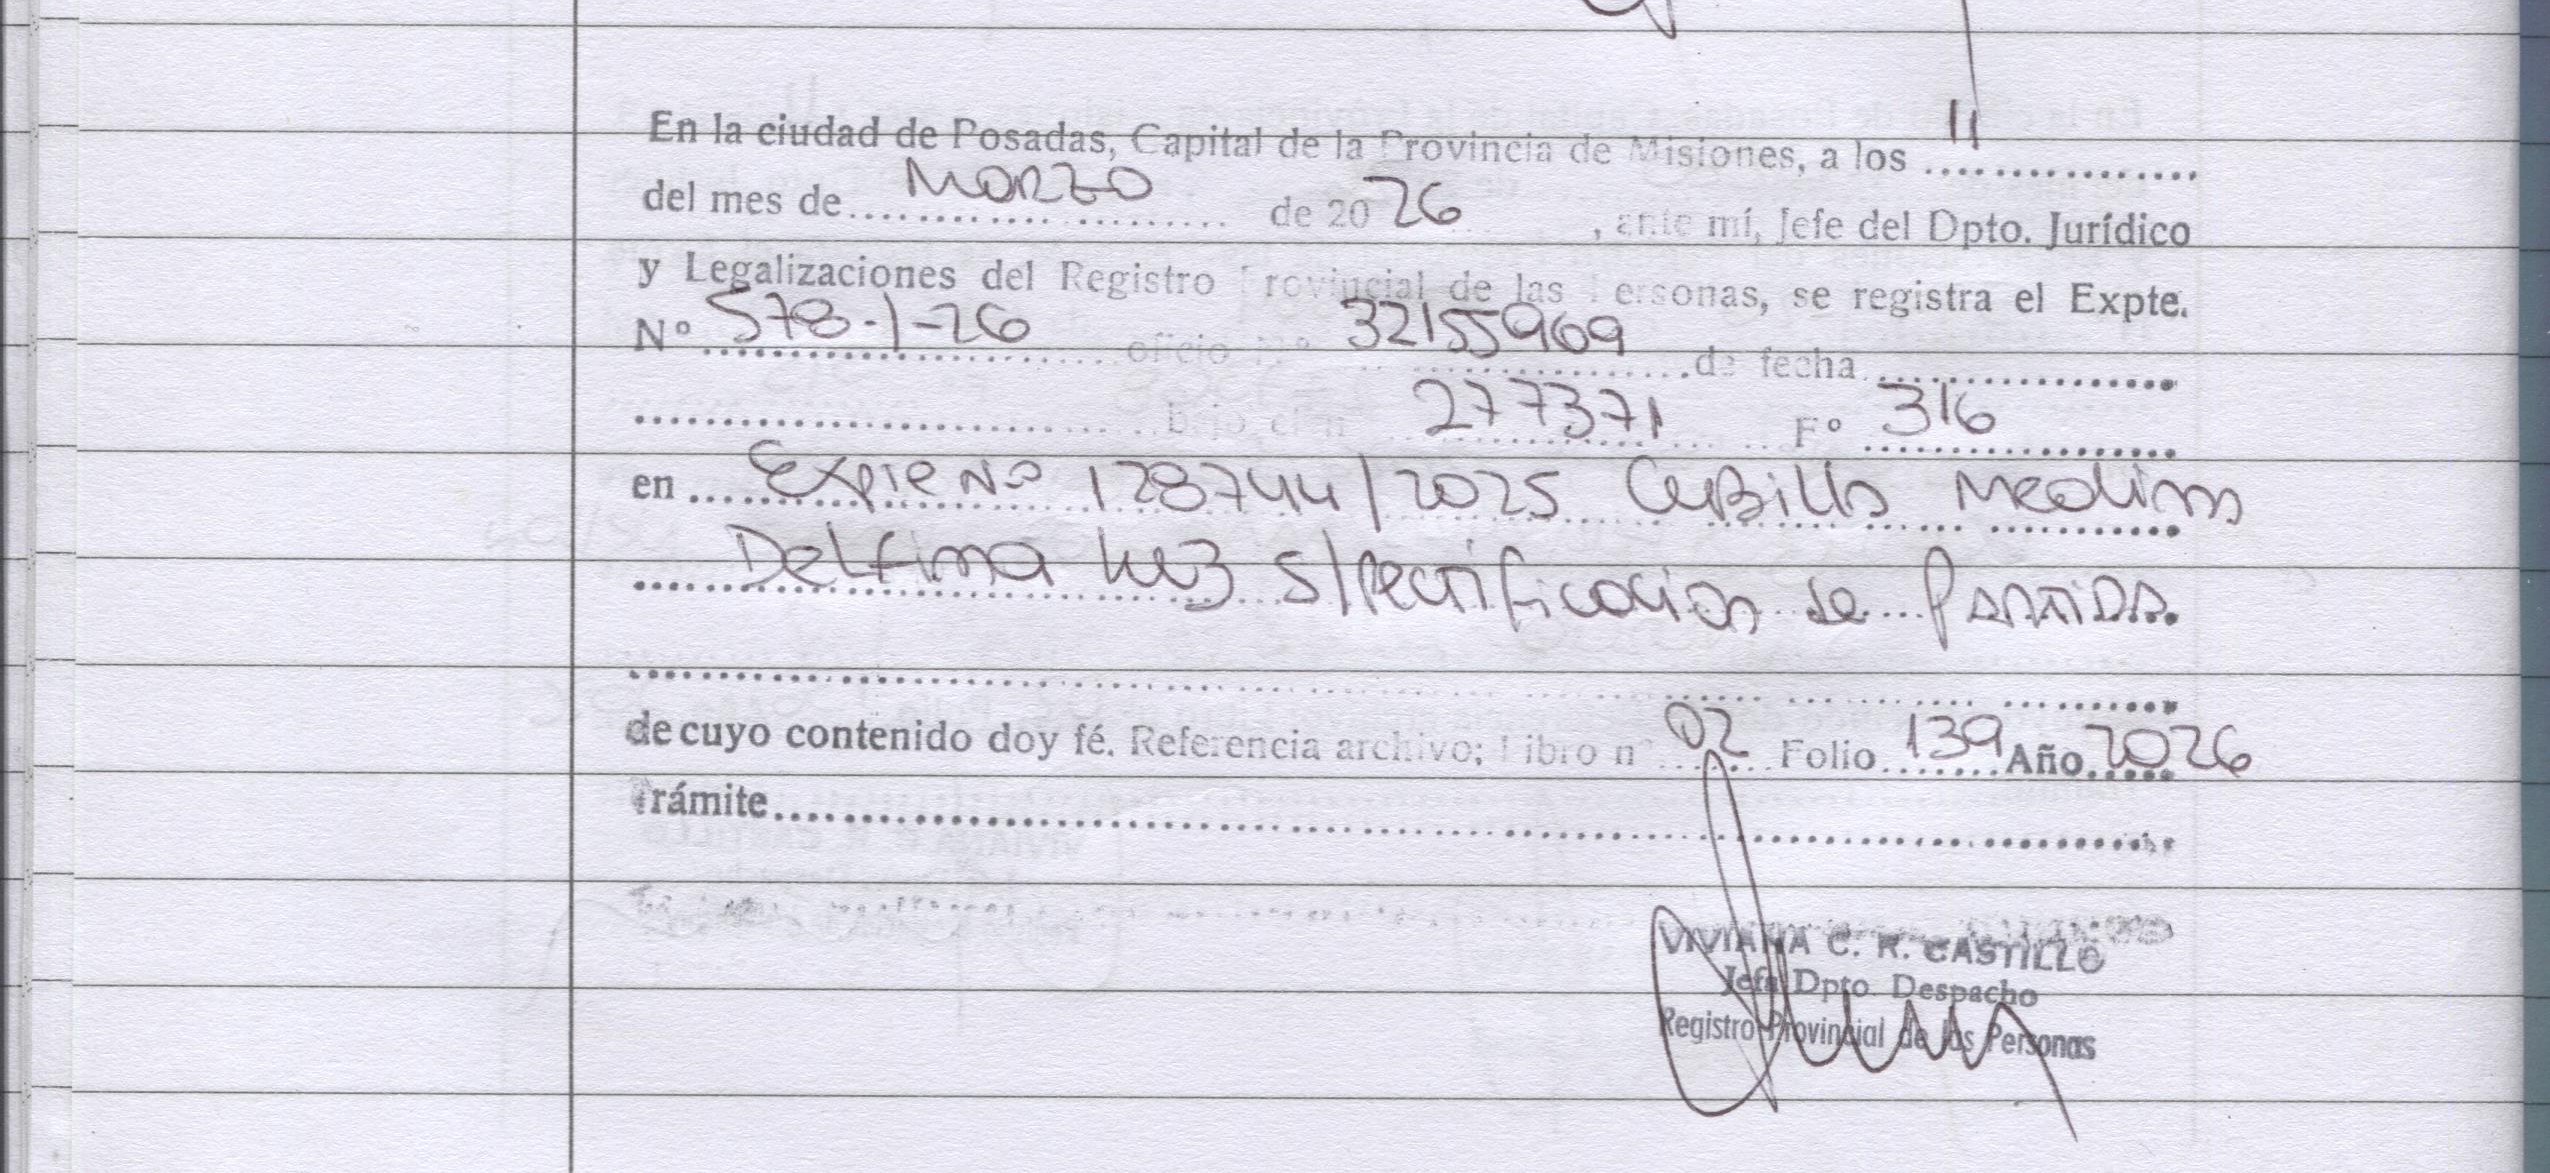 En la ciudad de Posadas, Capital de la Provincia de Misiones, a los 11
del mes de Marzo de 2026, ante mí, Jefe del Dpto. Jurídico
y Legalizaciones del Registro Provincial de las Personas, se registra el Expte.
Nº 578-1-26 oficio Nº 32155969 de fecha
bajo el nº 277371 Fº 316
en Expte Nº 128744/2025 Cubilla Medina
Delfina Luz s/Rectificacion de Partida.
de cuyo contenido doy fé. Referencia archivo; Libro nº 02 Folio 139 Año 2026
Trámite
VIVIANA C. R. CASTILLO
Jefa Dpto Despacho
Registro Provincial de las Personas